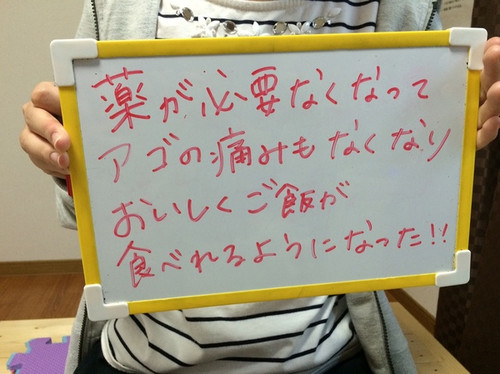 薬が必要なくなって
アゴの痛みもなくなり
おいしくご飯が
食べれるようになった!!